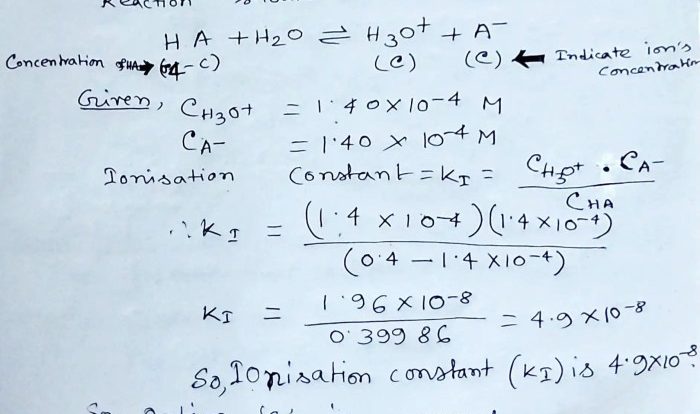 Reaction
HA + H2O ⇌ H3O+ + A-
Concentration of HA → (0.4-C) (C) (C) ← Indicate ion's concentration
Given, CH3O+ = 1.40×10-4 M
CA- = 1.40 × 10-4 M
Ionisation Constant = KI = CH3O+ . CA- / CHA
∴ KI = (1.4 × 10-4)(1.4×10-4) / (0.4 - 1.4 ×10-4)
KI = 1.96×10-8 / 0.39986 = 4.9×10-8
So, Ionisation constant (KI) is 4.9×10-8.